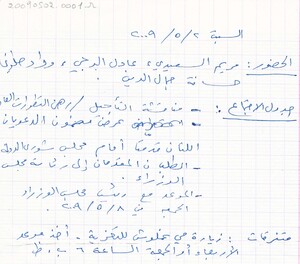 20090502.0001.R
السبت ٢ / ٥ / ٢٠٠٩
الحضور: مريم السعيدي، عادل البرجي، وداد حلواني
حسانة جمال الدين.
جدول الاجتماع: - مناقشة التأجيل / رهن التطورات
- عرض مضمون الدعويان
اللتان قدمتا أمام مجلس شورى الدولة
- الطلبان المقدمان إلى رئاسة مجلس
الوزراء.
- الموعد مع رئيس مجلس الوزراء
الجمعة في ٨ / ٥ / ٠٩
متفرقات: زيارة مي للتعزية. أخذ موعد
الأربعاء أو الجمعة الساعة ٦ ب. ظ.